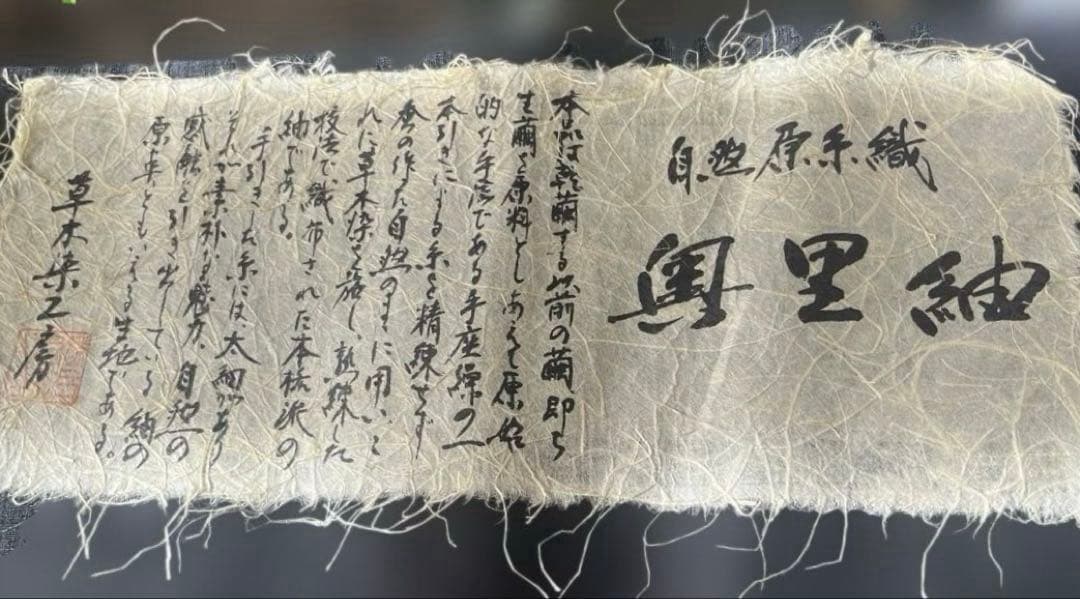 自然原糸織
奥里紬
本品は乾繭する以前の繭、即ち
生繭を原料としあえて原始
的な手法である手座繰の一
本引きによる糸を精練せず
蚕の作る自然のままに用いこ
れに草木染を施し、熟練した
技法で織布された本格派の
紬である。
手引きした糸には、太細があり
それが素朴な魅力、自然の
感触を引き出している紬の
原点ともいえる生地である。
草木染工房